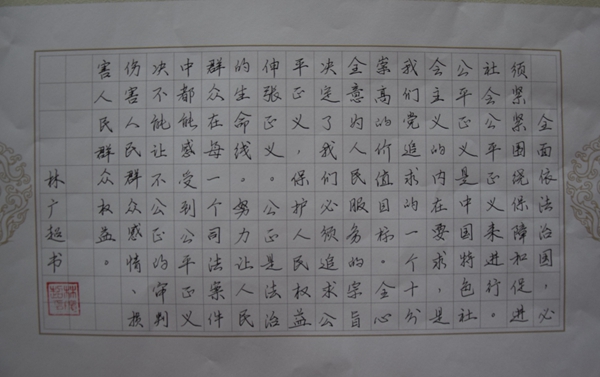 全面依法治国,必
须紧紧围绕保障和促进
社会公平正义来进行。
公平正义是中国特色社
会主义的内在要求,是
我们党追求的一个十分
崇高的价值目标。全心
全意为人民服务的宗旨
决定了我们必须追求公
平正义,保护人民权益
伸张正义。公正是法治
的生命线。努力让人民
群众在每一个司法案件
中都能感受到公平正义
决不能让不公正的审判
伤害人民群众感情、损
害人民群众权益。
林广超书